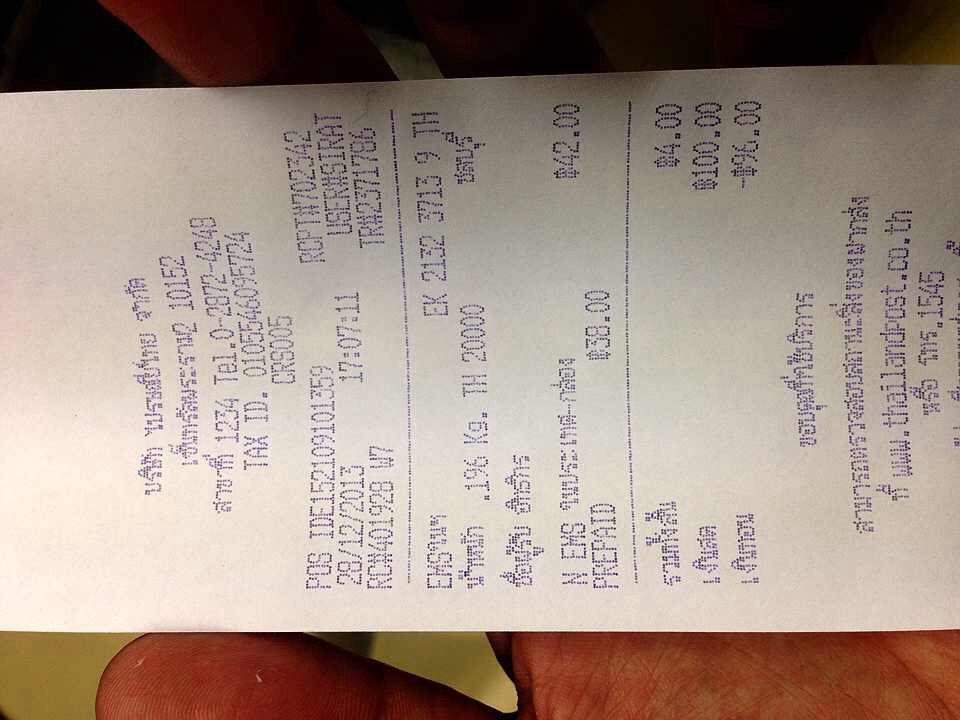 บริษัท ไปรษณีย์ไทย จำกัด
เซ็นทรัลพระราม2 10152
สาขาที่ 1234 Tel.0-2872-4248
TAX ID. 0105546095724
CRS005
POS IDE152109101359 RCPT#702342
28/12/2013 17:07:11 USER#SIRAT
RC#401928 W7 TR#2371786
EMSในฯ EK 2132 3713 9 TH
น้ำหนัก .196 Kg. TH 20000 ชลบุรี
ชื่อผู้รับ
N EMS ในประเทศ-กล่อง ฿42.00
PREPAID ฿38.00
รวมทั้งสิ้น ฿4.00
เงินสด ฿100.00
เงินทอน -฿96.00
ขอบคุณที่ใช้บริการ
สามารถตรวจสอบสถานะสิ่งของฝากส่ง
ที่ www.thailandpost.co.th
หรือ โทร.1545